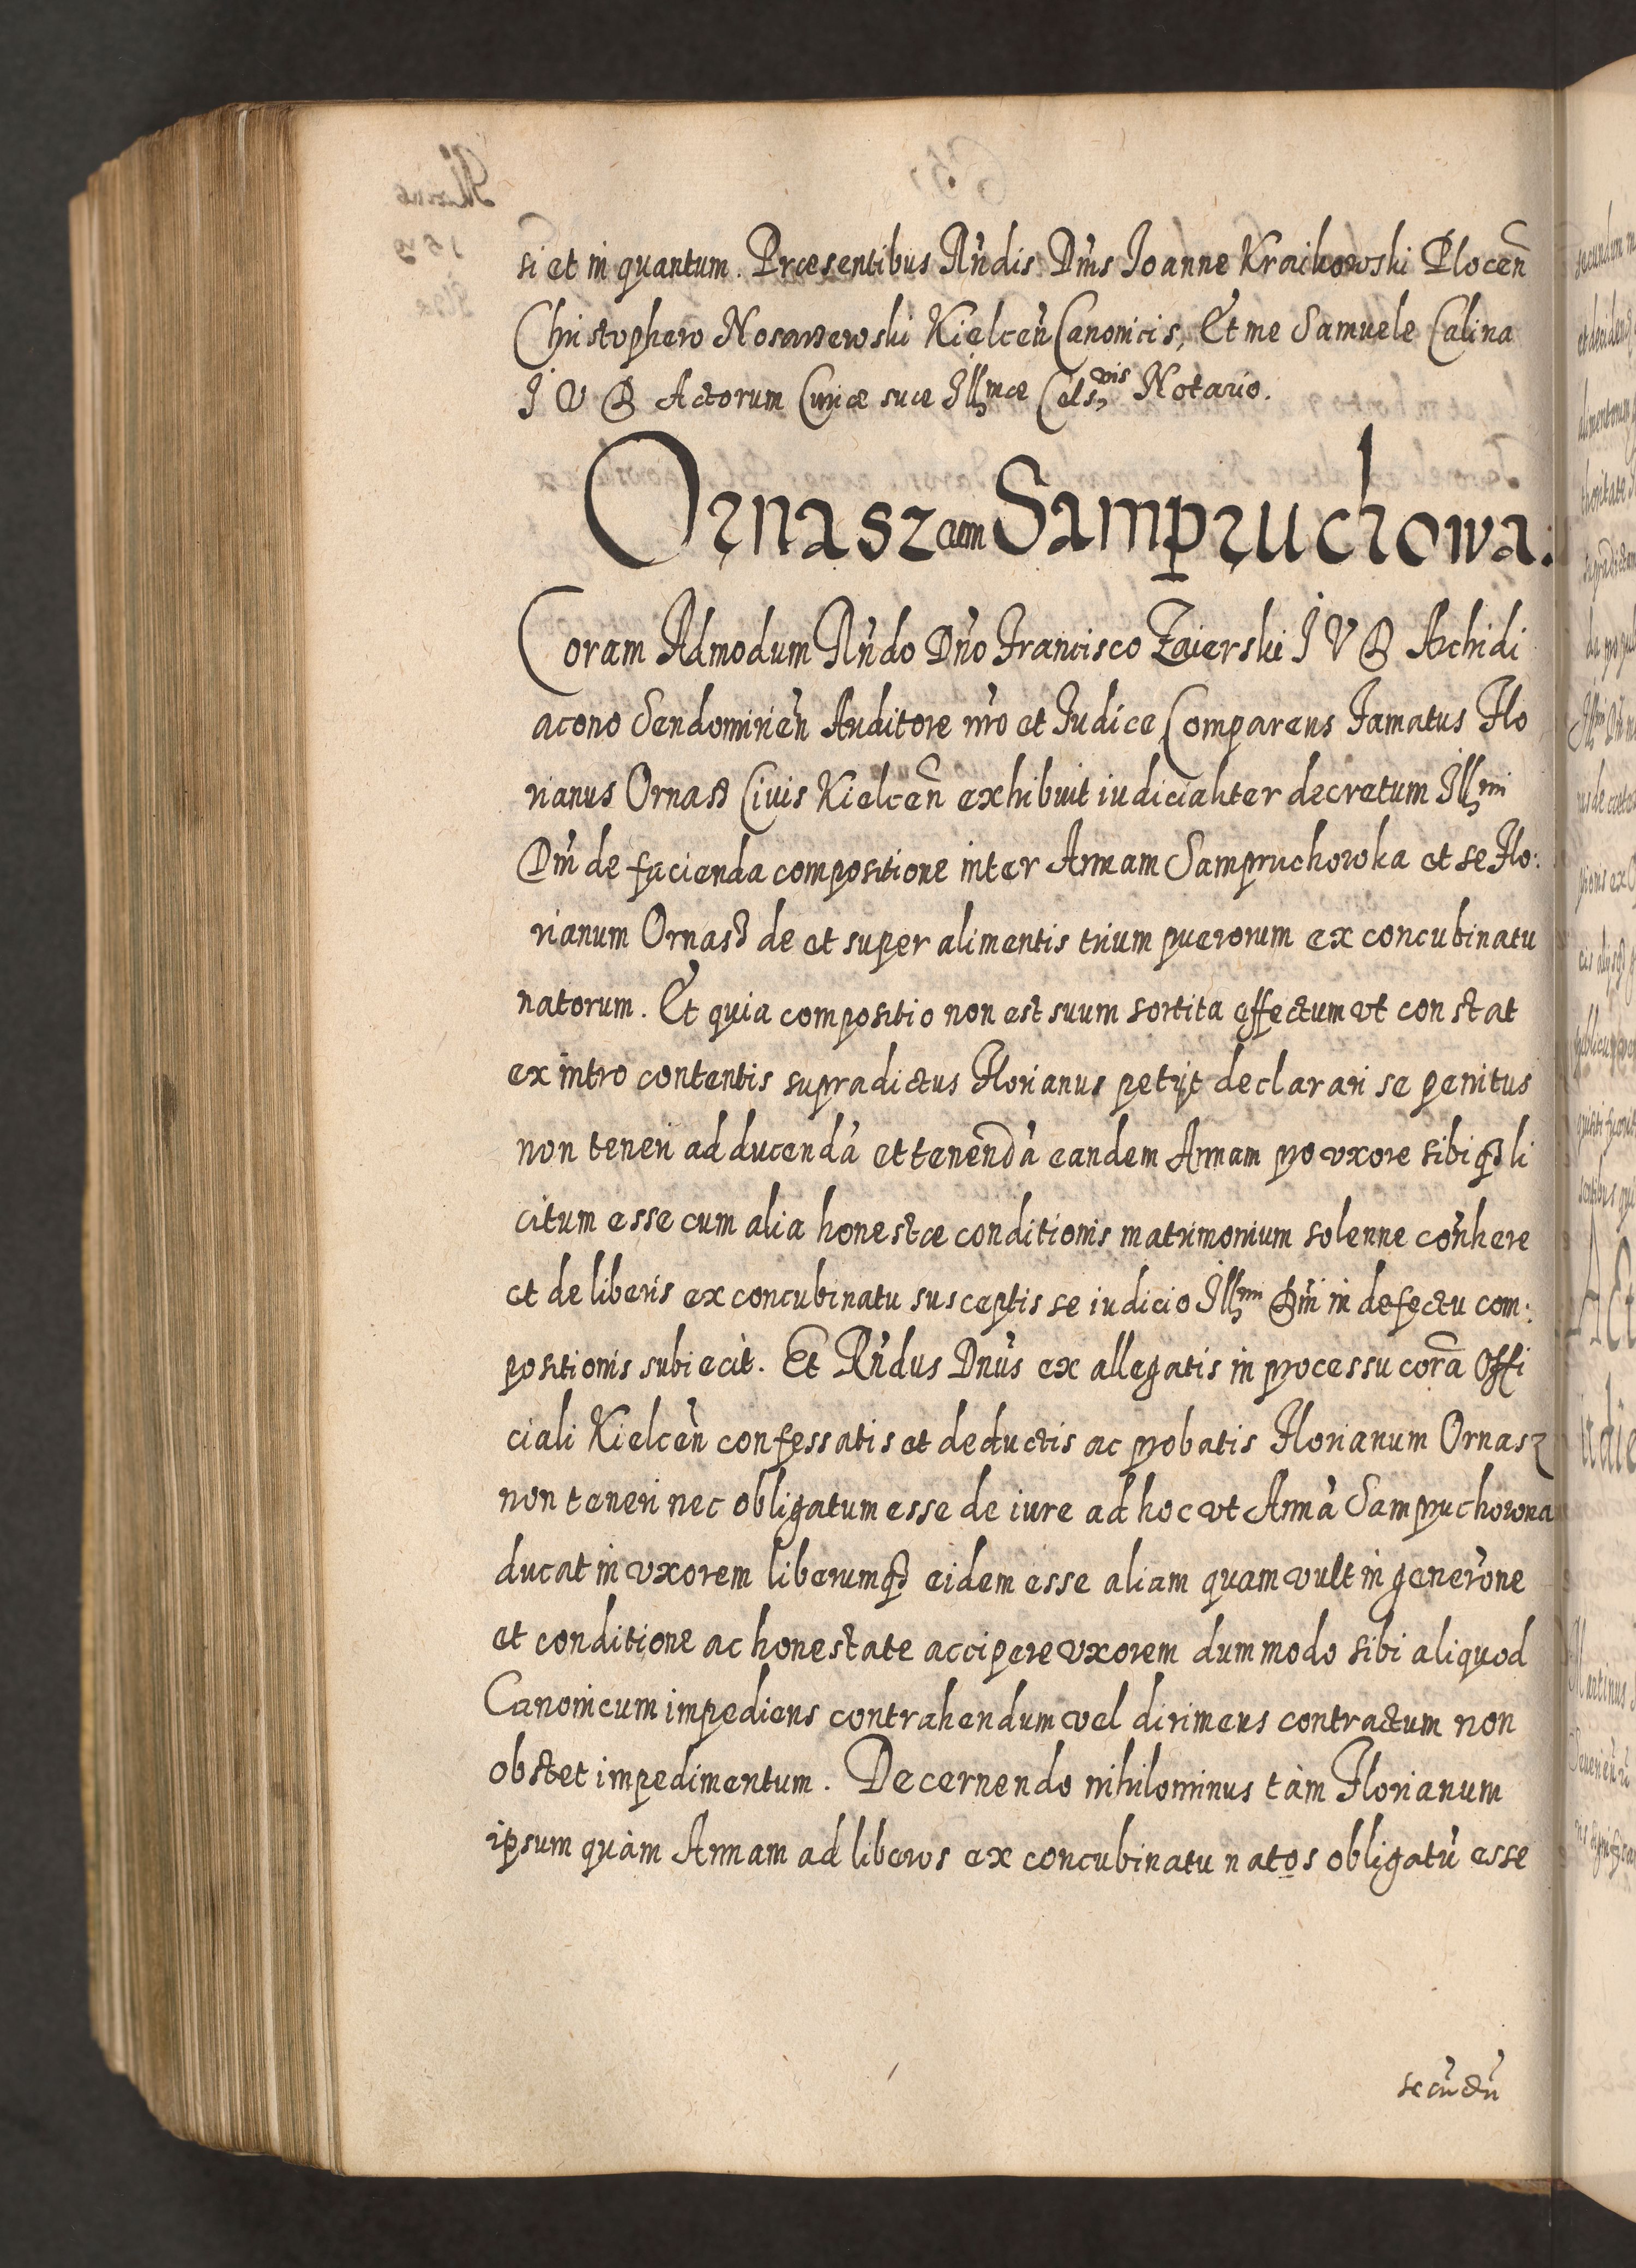 si et in quantum. Præsentibus Rńdis Dńis Joanne Kraikowski Plocen̄
Christophero Nosarzewski Kielcen̄ Canonicis, Et me Samuele Calina
J V D Actorum Curiæ suæ Illmæ Celsnis Notario.
Ornasz cum Sampruchowa:
Coram Admodum Rńdo Dńo Francisco Zaierski J V D Archidi
acono Sendomirień Auditore nr̃o et Judice Comparens Famatus Flo
rianus Ornasz Civis Kielcen̄ exhibuit iudicialiter decretum Illmi
Dńi de facienda compositione inter Annam Sampruchowka et se Flo:
rianum Ornasz de et super alimentis trium puerorum ex concubinatu
natorum. Et quia compositio non est suum sortita effectum vt constat
ex intro contentis supradictus Florianus petijt declarari se penitus
non teneri ad ducendā et tenendā eandem Annam pro vxore sibiqз li
citum esse cum alia honestæ conditionis matrimonium solenne cońhere
et de liberis ex concubinatu susceptis se iudicio Illmi Dńi in defectu com:
positionis subiecit. Et Rńdus Dnús ex allegatis in processu corā Offi
ciali Kielceń confessatis et deductis ac probatis Florianum Ornasz
non teneri nec obligatum esse de iure ad hoc vt Annā Sampruchowna
ducat in vxorem liberumqз eidem esse aliam quam vult in generōne
et conditione ac honestate accipere vxorem dummodo sibi aliquod
Canonicum impediens contrahendum vel dirimens contractum non
obstet impedimentum. Decernendo nihilominus tàm Florianum
ipsum quàm Annam ad liberos ex concubinatu natos obligatū esse
secūdū